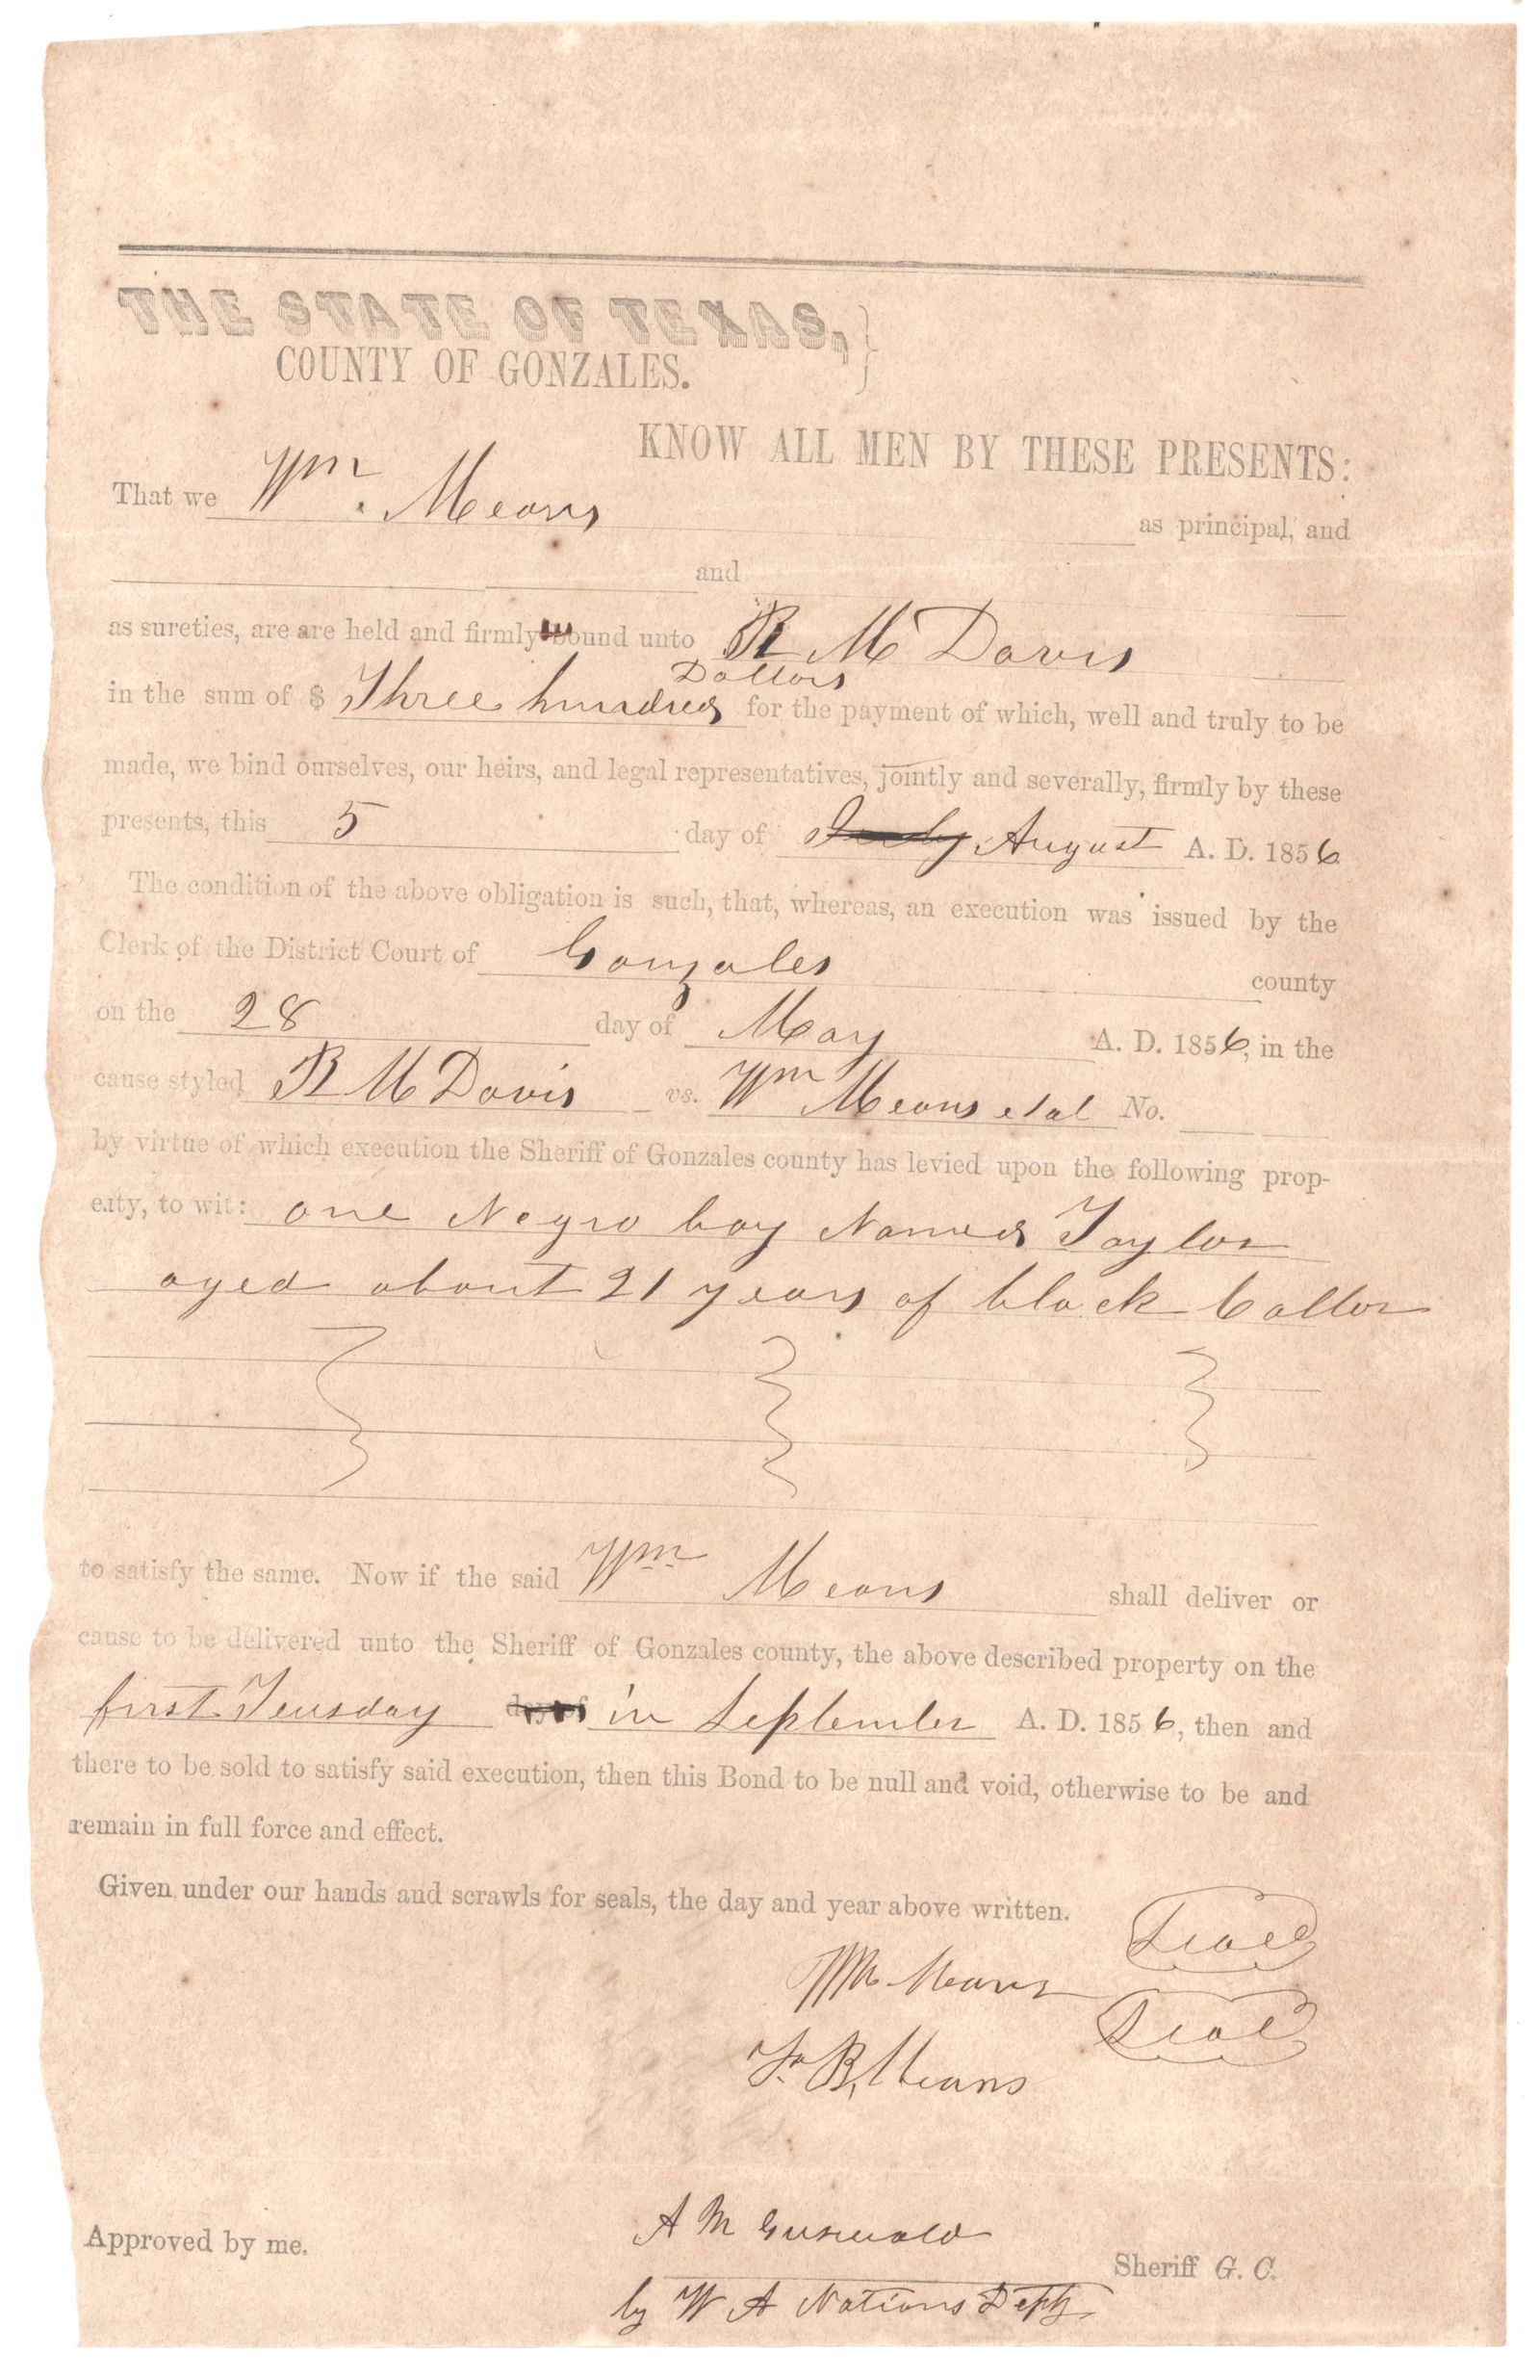 THE STATE OF TEXAS, }
COUNTY OF GONZALES.
KNOW ALL MEN BY THESE PRESENTS:
That we Wm. Means as principal, and
and
as sureties, are are held and firmly bound unto R M Davis
Dollars
in the sum of $ Three hundred for the payment of which, well and truly to be
made, we bind ourselves, our heirs, and legal representatives, jointly and severally, firmly by these
presents, this 5 day of July August A. D. 1856
The condition of the above obligation is such, that, whereas, an execution was issued by the
Clerk of the District Court of Gonzales county
on the 28 day of May A. D. 1856, in the
cause styled R M Davis vs. Wm Means etal No.
by virtue of which execution the Sheriff of Gonzales county has levied upon the following prop-
erty, to wit: one Negro boy Named Taylor
aged about 21 years of black Collor
to satisfy the same. Now if the said Wm Means shall deliver or
cause to be delivered unto the Sheriff of Gonzales county, the above described property on the
first Teusday day of in September A. D. 1856, then and
there to be sold to satisfy said execution, then this Bond to be null and void, otherwise to be and
remain in full force and effect.
Given under our hands and scrawls for seals, the day and year above written.
Seal
Wm Means
Seal
B, Means
A M Griswald
Approved by me. Sheriff G. C.
by W A Nations Depty